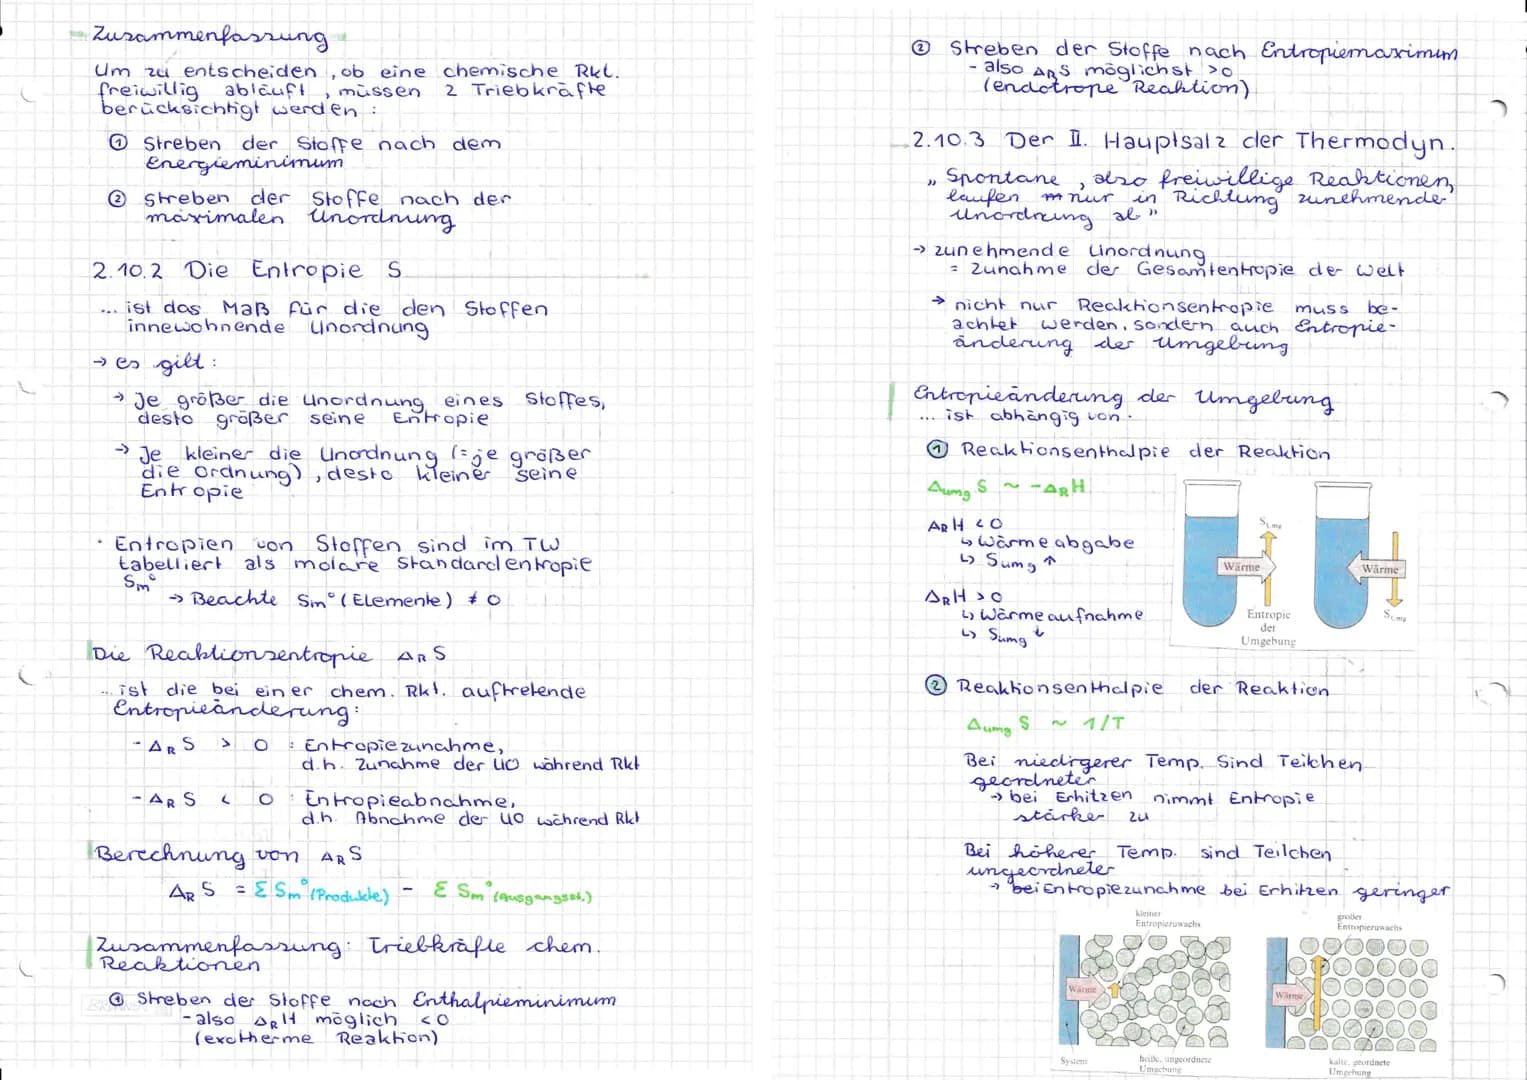 Zusammenfassung
Um zu entscheiden, ob eine chemische Rkt.
freiwillig abläuft, müssen 2 Triebkräfte
berücksichtigt werden:
① Streben der Stoffe nach dem
Energieminimum
② Streben der Stoffe nach der
maximalen Unordnung
2.10.2 Die Entropie S
... ist das Maß für die den Stoffen
innewohnende Unordnung
→ es gilt:
→ Je größer die Unordnung eines Stoffes,
desto größer seine Entropie
→ Je kleiner die Unordnung (= je größer
die Ordnung), desto kleiner seine
Entropie
· Entropien von Stoffen sind im TW
tabelliert als molare Standardentropie
Sm°
→ Beachte Sm° (Elemente) ≠ 0
Die Reaktionsentropie ΔRS
... ist die bei einer chem. Rkt. auftretende
Entropieänderung:
- ΔRS > 0 : Entropiezunahme,
d.h. Zunahme der UO während Rkt
- ΔRS < 0 : Entropieabnahme,
d.h. Abnahme der UO während Rkt
Berechnung von ΔRS
ΔRS = Σ Sm° (Produkte) - Σ Sm° (Ausgangsst.)
Zusammenfassung: Triebkräfte chem.
Reaktionen
① Streben der Stoffe nach Enthalpieminimum
- also ΔRH möglich < 0
(exotherme Reaktion)
② Streben der Stoffe nach Entropiemaximum
- also ΔRS möglichst > 0
(endotrope Reaktion)
2.10.3 Der II. Hauptsatz der Thermodyn.
„Spontane, also freiwillige Reaktionen,
laufen nur in Richtung zunehmende
Unordnung ab"
→ zunehmende Unordnung
= Zunahme der Gesamtentropie der Welt
→ nicht nur Reaktionsentropie muss be-
achtet werden, sondern auch Entropie-
änderung der Umgebung
Entropieänderung der Umgebung
... ist abhängig von:
① Reaktionsenthalpie der Reaktion
ΔumgS ~ -ΔRH
ΔRH < 0
↳ Wärmeabgabe
↳ Sumg ↑
ΔRH > 0
↳ Wärmeaufnahme
↳ Sumg ↓
SUmg
Wärme
Entropie
der
Umgebung
Wärme
SUmg
② Reaktionsenthalpie der Reaktion
ΔumgS ~ 1/T
Bei niedrigerer Temp. sind Teilchen
geordneter
→ bei Erhitzen nimmt Entropie
stärker zu
Bei höherer Temp. sind Teilchen
ungeordneter
→ bei Entropiezunahme bei Erhitzen geringer
kleiner
Entropiezuwachs
Wärme
System
heiße, ungeordnete
Umgebung
großer
Entropiezuwachs
Wärme
kalte, geordnete
Umgebung